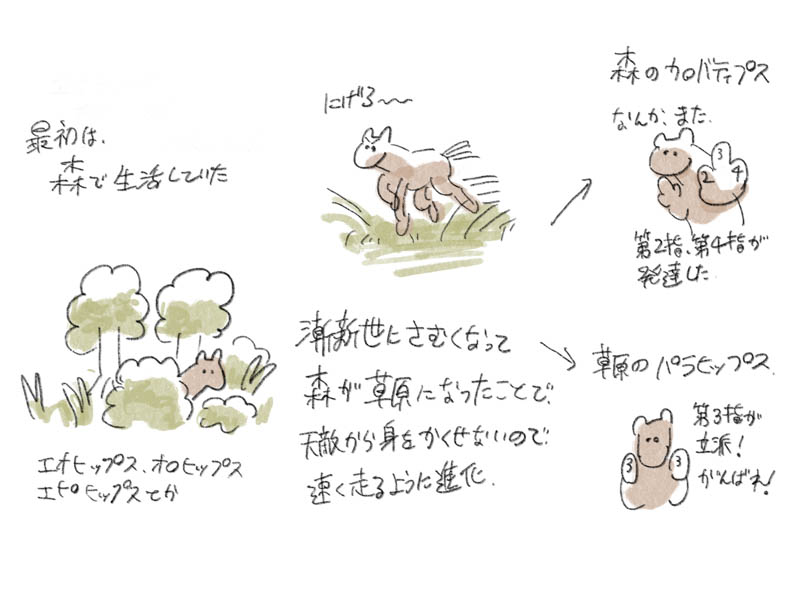 最初は、
森で生活していた
エオヒップス、オロヒップス
エピヒップスとか
にげろ〜〜
漸新世にさむくなって
森が草原になったことで、
天敵から身をかくせないので
速く走るように進化。
森のカロバティプス
なんか、また、
3
2
4
第2指、第4指が
発達した
草原のパラヒップス。
第3指が
立派！
がんばれ！
3
3